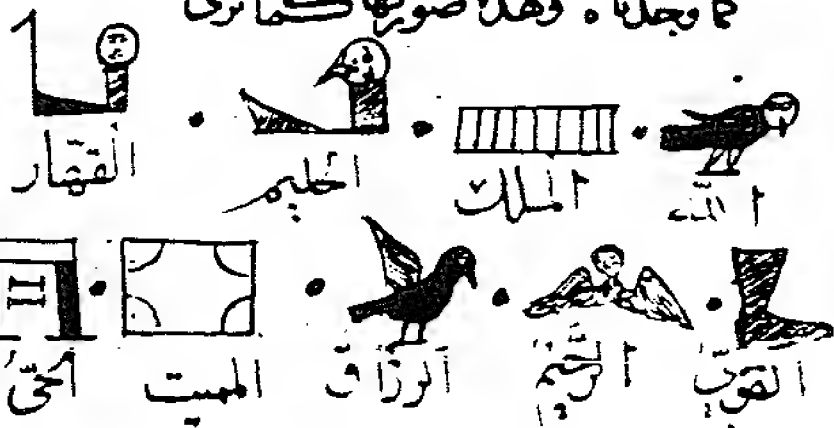 كما وجدنا ٥ وهذه صورتها كما ترى
الله الملك الحليم القهار
القوىّ الرَّحِيمُ الرزاق المميت الحىّ